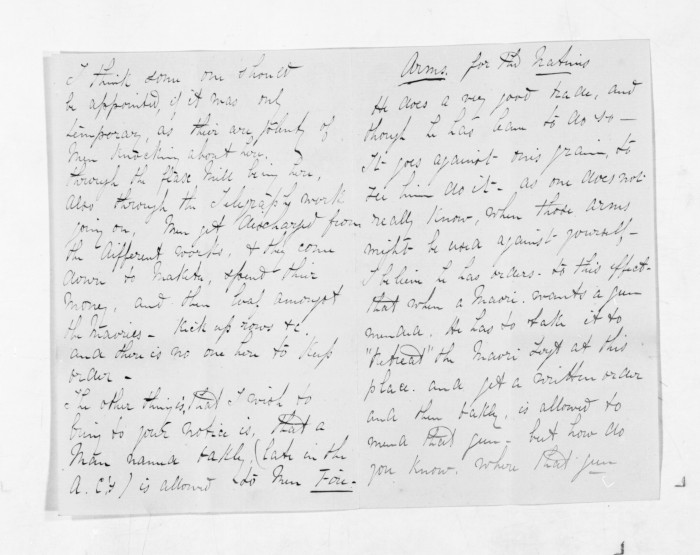 I think some one should
be appointed, if it was only
temporary, as their are plenty of
Men Knocking about here,
through the flax Mill being here,
also through the Telegraphy work
going on, Men get discharged from
the different works, & they come
down to Maketu, spend their
money, and then loaf amongst
the Maories - Kick up rows &c.
and there is no one here to Keep
order -
The other things, that I wish to
bring to your notice is, that a
Man named (late in the
A. C's) is allowed to Men Fire-
Arms. for the Natives
He does a very good trade, and
though he has leave to do so -
It goes against ones grain, to
see him do it - as one does not
really Know, when those arms
might be used against yourself, -
I believe he has orders - to this effect -
that when a Maori. wants a gun
mended. He has to take it to
the Maori at this
place. and get a written order
and then is allowed to
mend that gun - but how do
you Know. where that gun